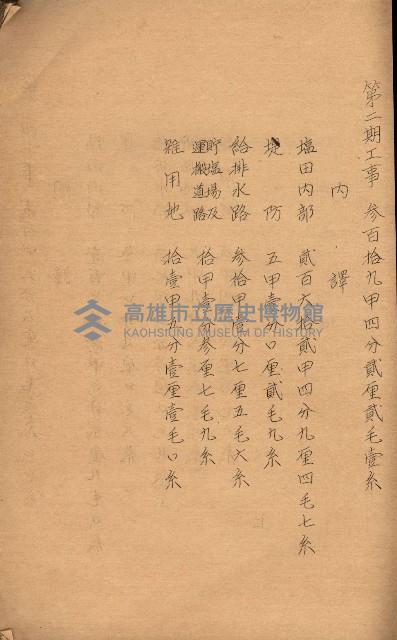 第二期工事 参百拾九甲四分貳厘貳毛壹糸
内譯
塩田内部 貳百六拾貳甲四分九厘四毛七糸
堤防 五甲壹分〇厘貳毛九糸
給排水路 参拾甲壹分七厘五毛六糸
貯塩場及
運搬道路 拾甲壹分参厘七毛九糸
雜用地 拾壹甲五分壹厘壹毛〇糸
高雄市立歷史博物館
KAOHSIUNG MUSEUM OF HISTORY